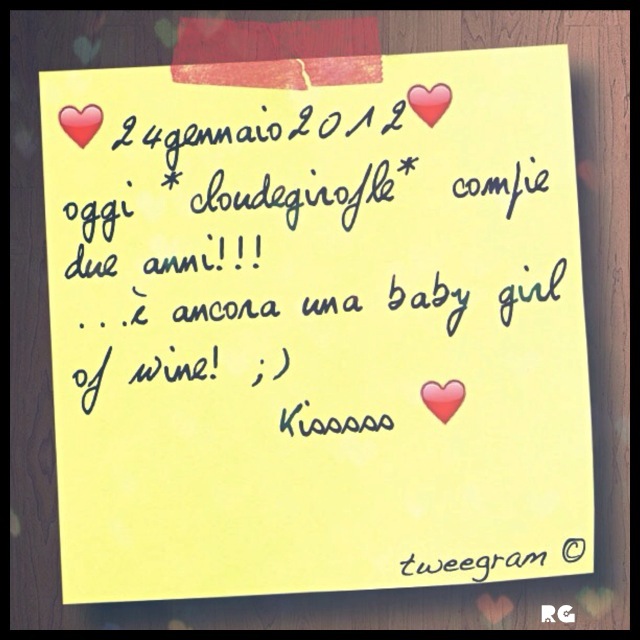 ❤ 24gennaio2012❤
oggi *cloudegirofle* compie
due anni!!!
...è ancora una baby girl
of wine! ;)
Kisssss ❤
tweegram ©
RG